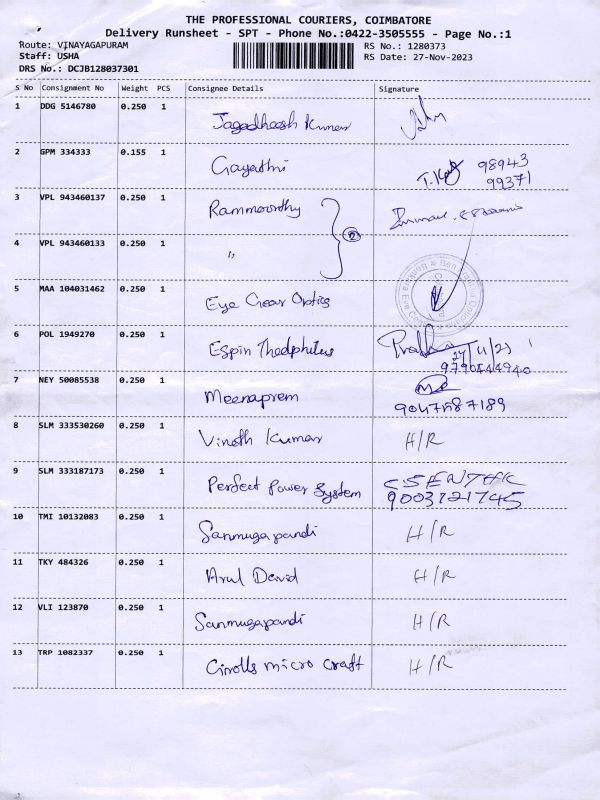 THE PROFESSIONAL COURIERS, COIMBATORE
Delivery Runsheet - SPT - Phone No.:0422-3505555 - Page No.:1
Route: VINAYAGAPURAM
RS No.: 1280373
Staff: USHA
RS Date: 27-Nov-2023
DRS No.: DCJB128037301
S No Consignment No Weight PCS Consignee Details Signature
1 DDG 5146780 0.250 1 Jagadheesh Kumar
2 GPM 334333 0.155 1 Gayathri 98943
99371
3 VPL 943460137 0.250 1 Rammoorthy
4 VPL 943460133 0.250 1 " 2
5 MAA 104031462 0.250 1 Eye Gear Optics
6 POL 1949270 0.250 1 Espin Thedphilus
27/11/23
7 NEY 50085538 0.250 1 Meenaprem
9047587189
8 SLM 333530260 0.250 1 Vinoth Kumar H/R
9 SLM 333187173 0.250 1 Perfect Power System CSENTHIL
9003121745
10 TMI 10132083 0.250 1 Sanmugapandi H/R
11 TKY 484326 0.250 1 Arul David H/R
12 VLI 123870 0.250 1 Sanmugapandi H/R
13 TRP 1082337 0.250 1 Cinolls micro craft H/R